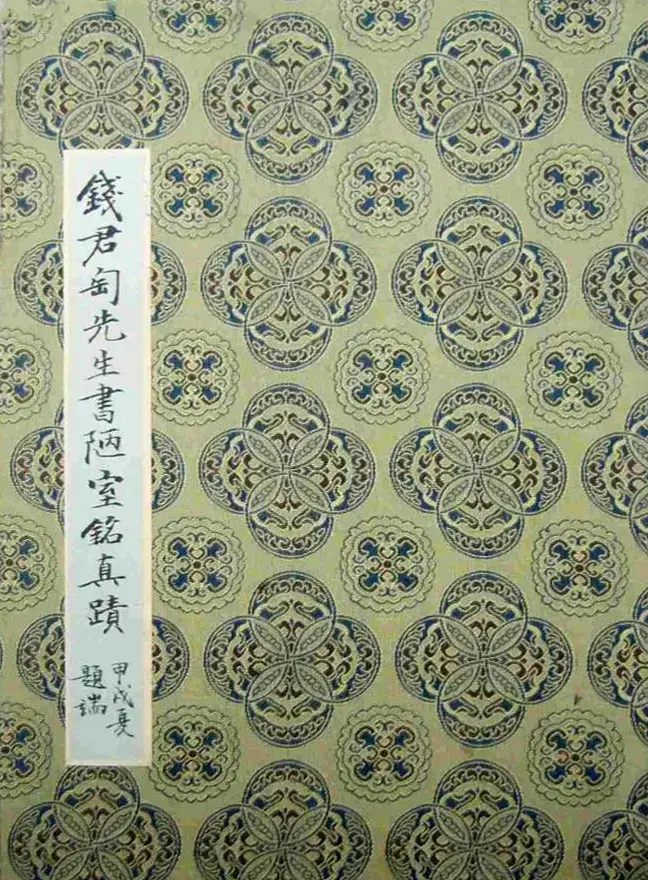 錢君匋先生書陋室銘真蹟
甲戌夏
題端